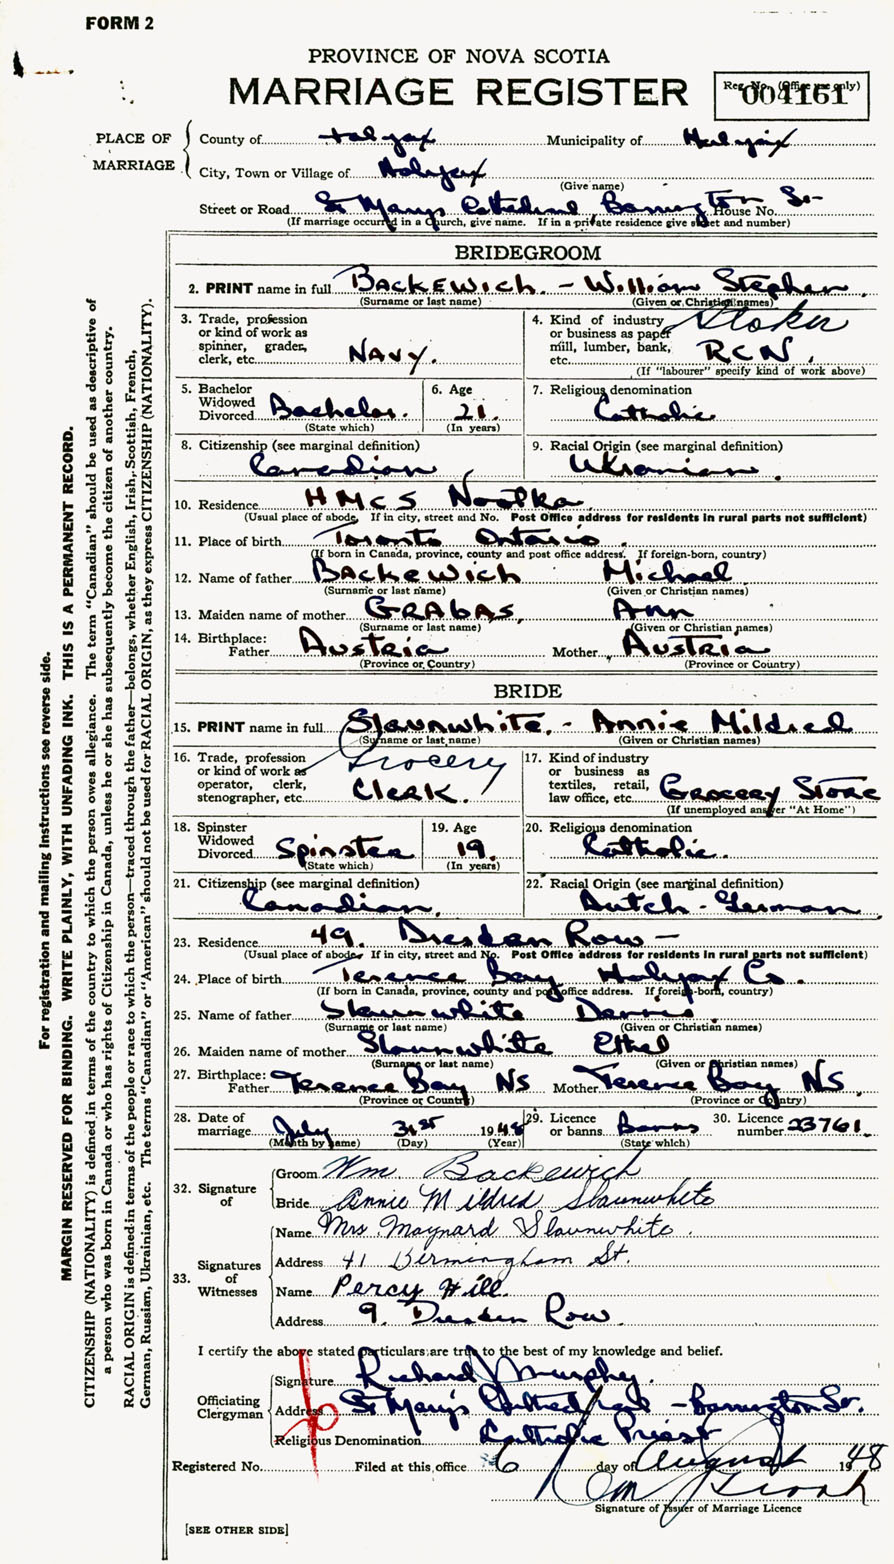 FORM 2
PROVINCE OF NOVA SCOTIA
MARRIAGE REGISTER
Reg. No. (Office use only)
004161
PLACE OF MARRIAGE
County of Halifax Municipality of Halifax
City, Town or Village of Halifax
(Give name)
Street or Road St Marys Cathedral Barrington St- House No.
(If marriage occurred in a Church, give name. If in a private residence give street and number)
BRIDEGROOM
2. PRINT name in full BACKEWICH. - William Stephen.
(Surname or last name) (Given or Christian names)
3. Trade, profession or kind of work as spinner, grader, clerk, etc. NAVY.
4. Kind of industry or business as paper mill, lumber, bank, etc. Stoker RCN.
(If "labourer" specify kind of work above)
5. Bachelor Widowed Divorced Bachelor.
(State which)
6. Age 21.
(In years)
7. Religious denomination Catholic
8. Citizenship (see marginal definition) Canadian
9. Racial Origin (see marginal definition) Ukranian.
10. Residence HMCS Nootka
(Usual place of abode. If in city, street and No. Post Office address for residents in rural parts not sufficient)
11. Place of birth Toronto Ontario.
(If born in Canada, province, county and post office address. If foreign-born, country)
12. Name of father BACKEWICH Michael.
(Surname or last name) (Given or Christian names)
13. Maiden name of mother GRABAS. Ann
(Surname or last name) (Given or Christian names)
14. Birthplace: Father AUSTRIA Mother AUSTRIA
(Province or Country) (Province or Country)
BRIDE
15. PRINT name in full Slaunwhite. - Annie Mildred
(Surname or last name) (Given or Christian names)
16. Trade, profession or kind of work as operator, clerk, stenographer, etc. Grocery Clerk.
17. Kind of industry or business as textiles, retail, law office, etc. Grocery Store
(If unemployed answer "At Home")
18. Spinster Widowed Divorced Spinster
(State which)
19. Age 19.
(In years)
20. Religious denomination Catholic.
21. Citizenship (see marginal definition) Canadian.
22. Racial Origin (see marginal definition) Dutch-German
23. Residence 49. Dresden Row-
(Usual place of abode. If in city, street and No. Post Office address for residents in rural parts not sufficient)
24. Place of birth Terence Bay Halifax Co.
(If born in Canada, province, county and post office address. If foreign-born, country)
25. Name of father Slaunwhite Dennis.
(Surname or last name) (Given or Christian names)
26. Maiden name of mother Slaunwhite Ethel
(Surname or last name) (Given or Christian names)
27. Birthplace: Father Terence Bay NS Mother Terence Bay NS.
(Province or Country) (Province or Country)
28. Date of marriage July 31st 1948
(Month by name) (Day) (Year)
29. Licence or banns Banns
(State which)
30. Licence number 23761.
32. Signature of
Groom Wm Backewich
Bride Annie Mildred Slaunwhite
33. Signatures of Witnesses
Name Mrs Maynard Slaunwhite.
Address 41 Bermingham St.
Name Percy Hill.
Address 9. Dresden Row.
I certify the above stated particulars are true to the best of my knowledge and belief.
Officiating Clergyman
Signature Richard J Murphy.
Address St Mary's Cathedral - Barrington St.
Religious Denomination Catholic Priest
Registered No. Filed at this office 6 day of August 1948
Signature of Issuer of Marriage Licence
[SEE OTHER SIDE]
For registration and mailing instructions see reverse side.
MARGIN RESERVED FOR BINDING. WRITE PLAINLY, WITH UNFADING INK. THIS IS A PERMANENT RECORD.
CITIZENSHIP (NATIONALITY) is defined in terms of the country to which the person owes allegiance. The term "Canadian" should be used as descriptive of
a person who was born in Canada or who has rights of Citizenship in Canada, unless he or she has subsequently become the citizen of another country.
RACIAL ORIGIN is defined in terms of the people or race to which the person—traced through the father—belongs, whether English, Irish, Scottish, French,
German, Russian, Ukrainian, etc. The terms "Canadian" or "American" should not be used for RACIAL ORIGIN, as they express CITIZENSHIP (NATIONALITY).